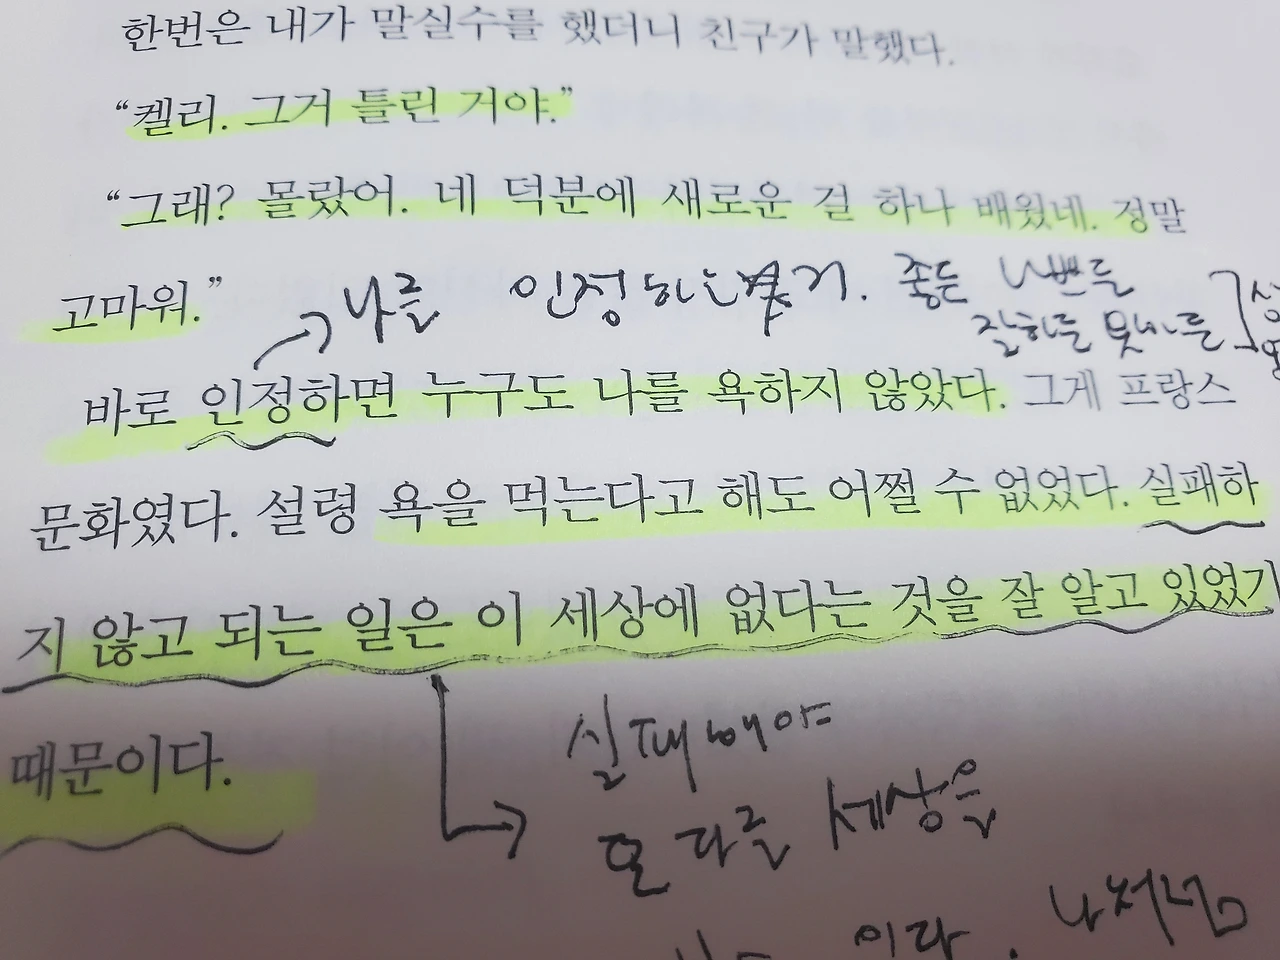 한번은 내가 말실수를 했더니 친구가 말했다.
“켈리. 그거 틀린 거야.”
“그래? 몰랐어. 네 덕분에 새로운 걸 하나 배웠네. 정말
고마워.”
나를 인정하는 거. 좋든 나쁘든
잘하든 못하든
바로 인정하면 누구도 나를 욕하지 않았다. 그게 프랑스
문화였다. 설령 욕을 먹는다고 해도 어쩔 수 없었다. 실패하
지 않고 되는 일은 이 세상에 없다는 것을 잘 알고 있었기
때문이다.
실패해야
또 다른 세상을
이다. 나처럼